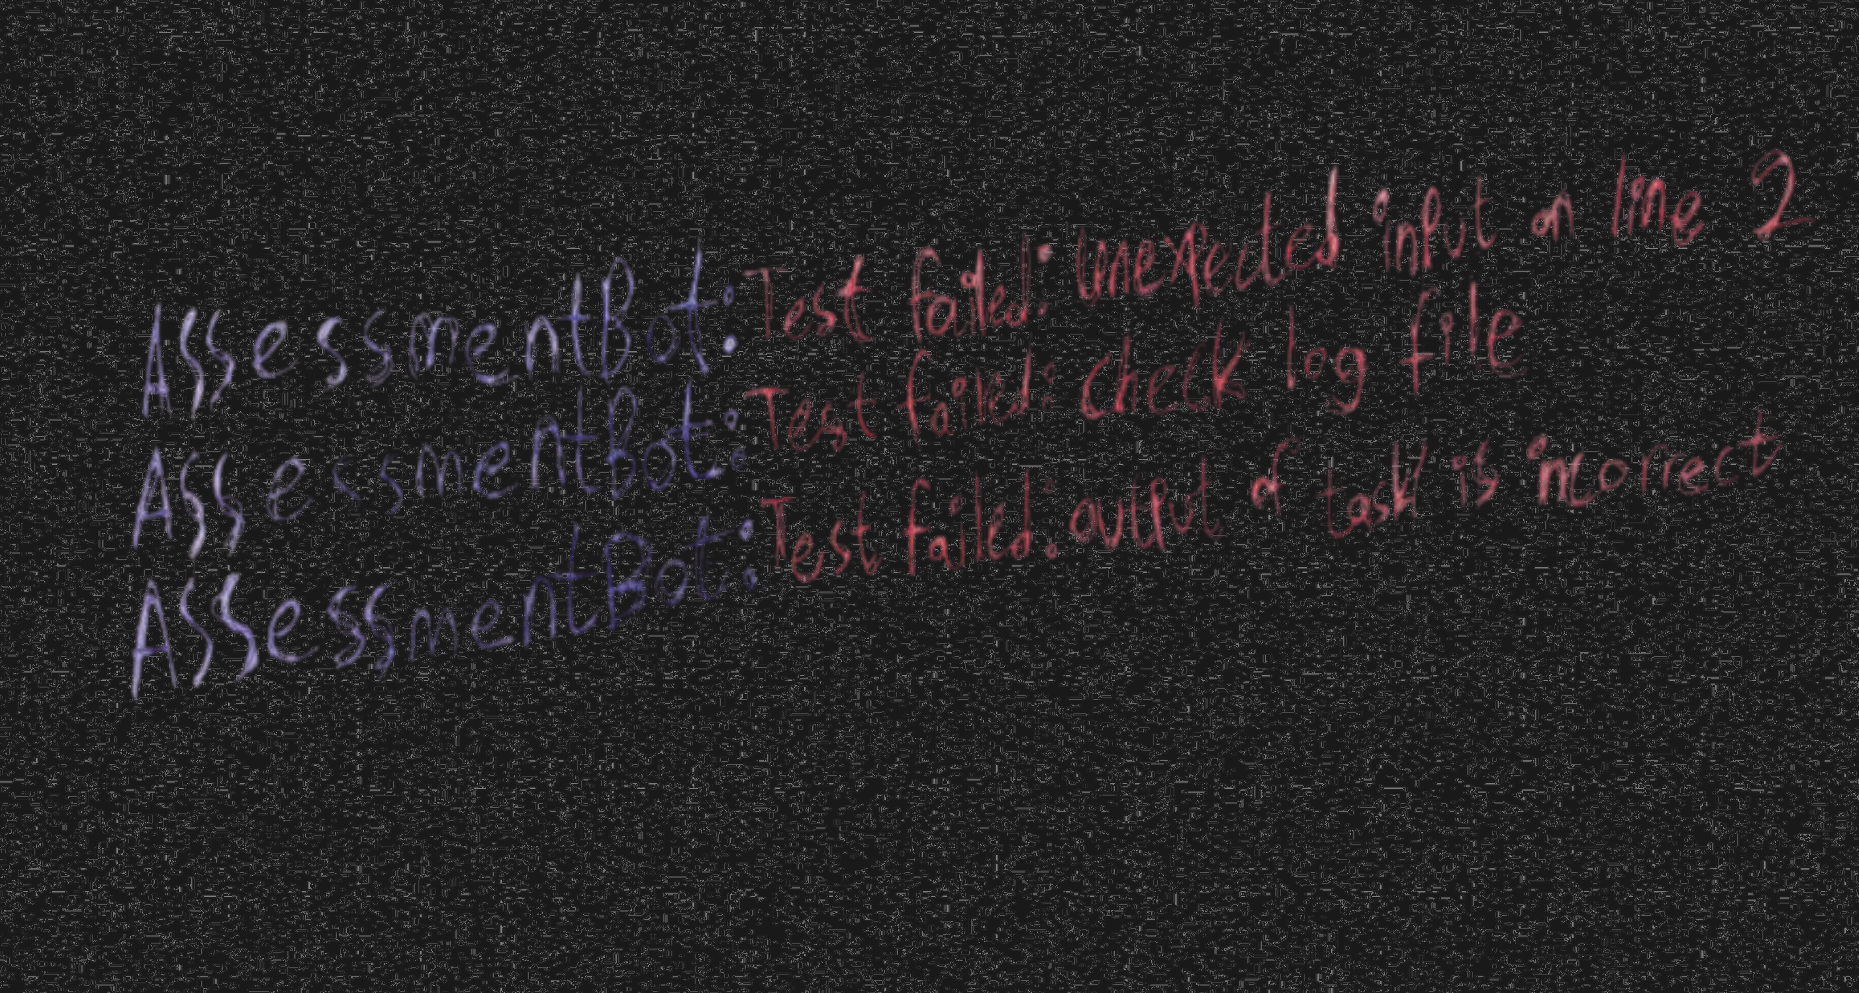 AssessmentBot: Test failed: unexpected input on line 2
AssessmentBot: Test failed: check log file
AssessmentBot: Test failed: output of task is incorrect